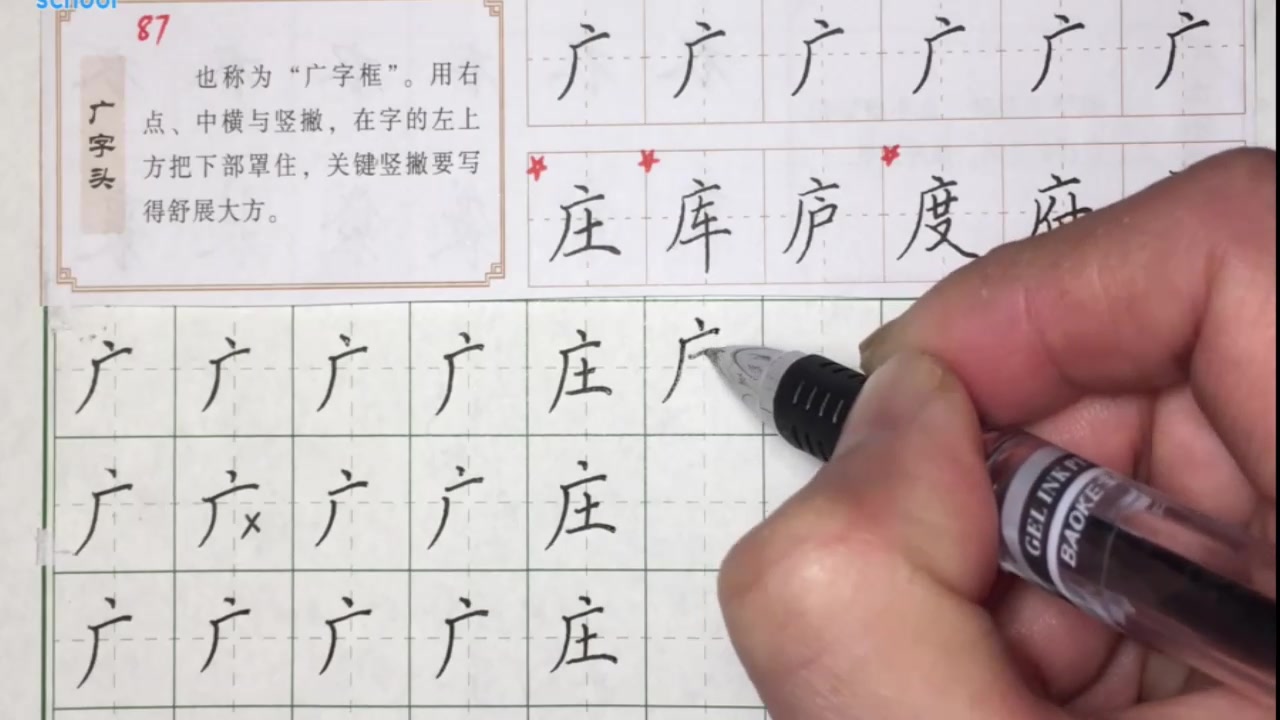 school
87
广字头
也称为“广字框”。用右
点、中横与竖撇，在字的左上
方把下部罩住，关键竖撇要写
得舒展大方。
广 广 广 广 广 广
庄 库 庐 度 府
广 广 广 广 庄 广
广 广 × 广 广 庄
广 广 广 广 庄
GEL INK P
BAOKE